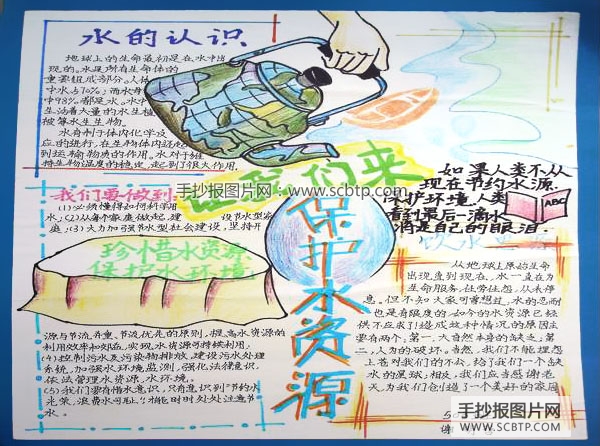 水的认识
地球上的生命最初是在水中出
现的。水是所有生命体的
重要组成部分。人体
中水占70%；而水母
中98%都是水。水中
生活着大量的水生植
被等水生生物。
水有利于体内化学反
应的进行，在生物体内还起
到运输物质的作用。水对于维
持生物温度的稳定，起到了很大作用。
让我们来
保护水资源
手抄报图片网:www.scbtp.com
我们要做到:
(1)必须懂得如何科学用
水；(2)从每个家庭做起，建 设节水型家
庭；(3)大力加强节水型社会建设，坚持开
珍惜水资源
保护水环境
源与节流并重、节流优先的原则，提高水资源的
利用效率和效益，实现水资源可持续利用。
(4)控制污水及污染物排放，建设污水处理
系统，加强水环境监测，强化法律意识，
依法管理水资源，水环境。
(5)我们要有惜水意识，只有意识到"节约水
光荣，浪费水可耻"，才能时时处处注意节
水。
如果人类不从
现在节约水源
保护环境，人类
看到最后一滴水
将是自己的眼泪
ABC
饮水思
从地球上原始生命
出现直到现在，水一直在为
生命服务，任劳任怨，从未停
息。但不知大家可曾想过，水的忍耐
也是有限度的，如今的水资源已经
供不应求了！造成这种情况的原因主
要有两个，第一，大自然本身的缺乏；第
二，人为的破坏。当然，我们不能埋怨
上苍对我们的不公，给了我们一个缺
水的星球，相反，我们应当感谢老
天为我们创造了一个美好的家园
手抄报图片网
WWW.SCBTP.COM